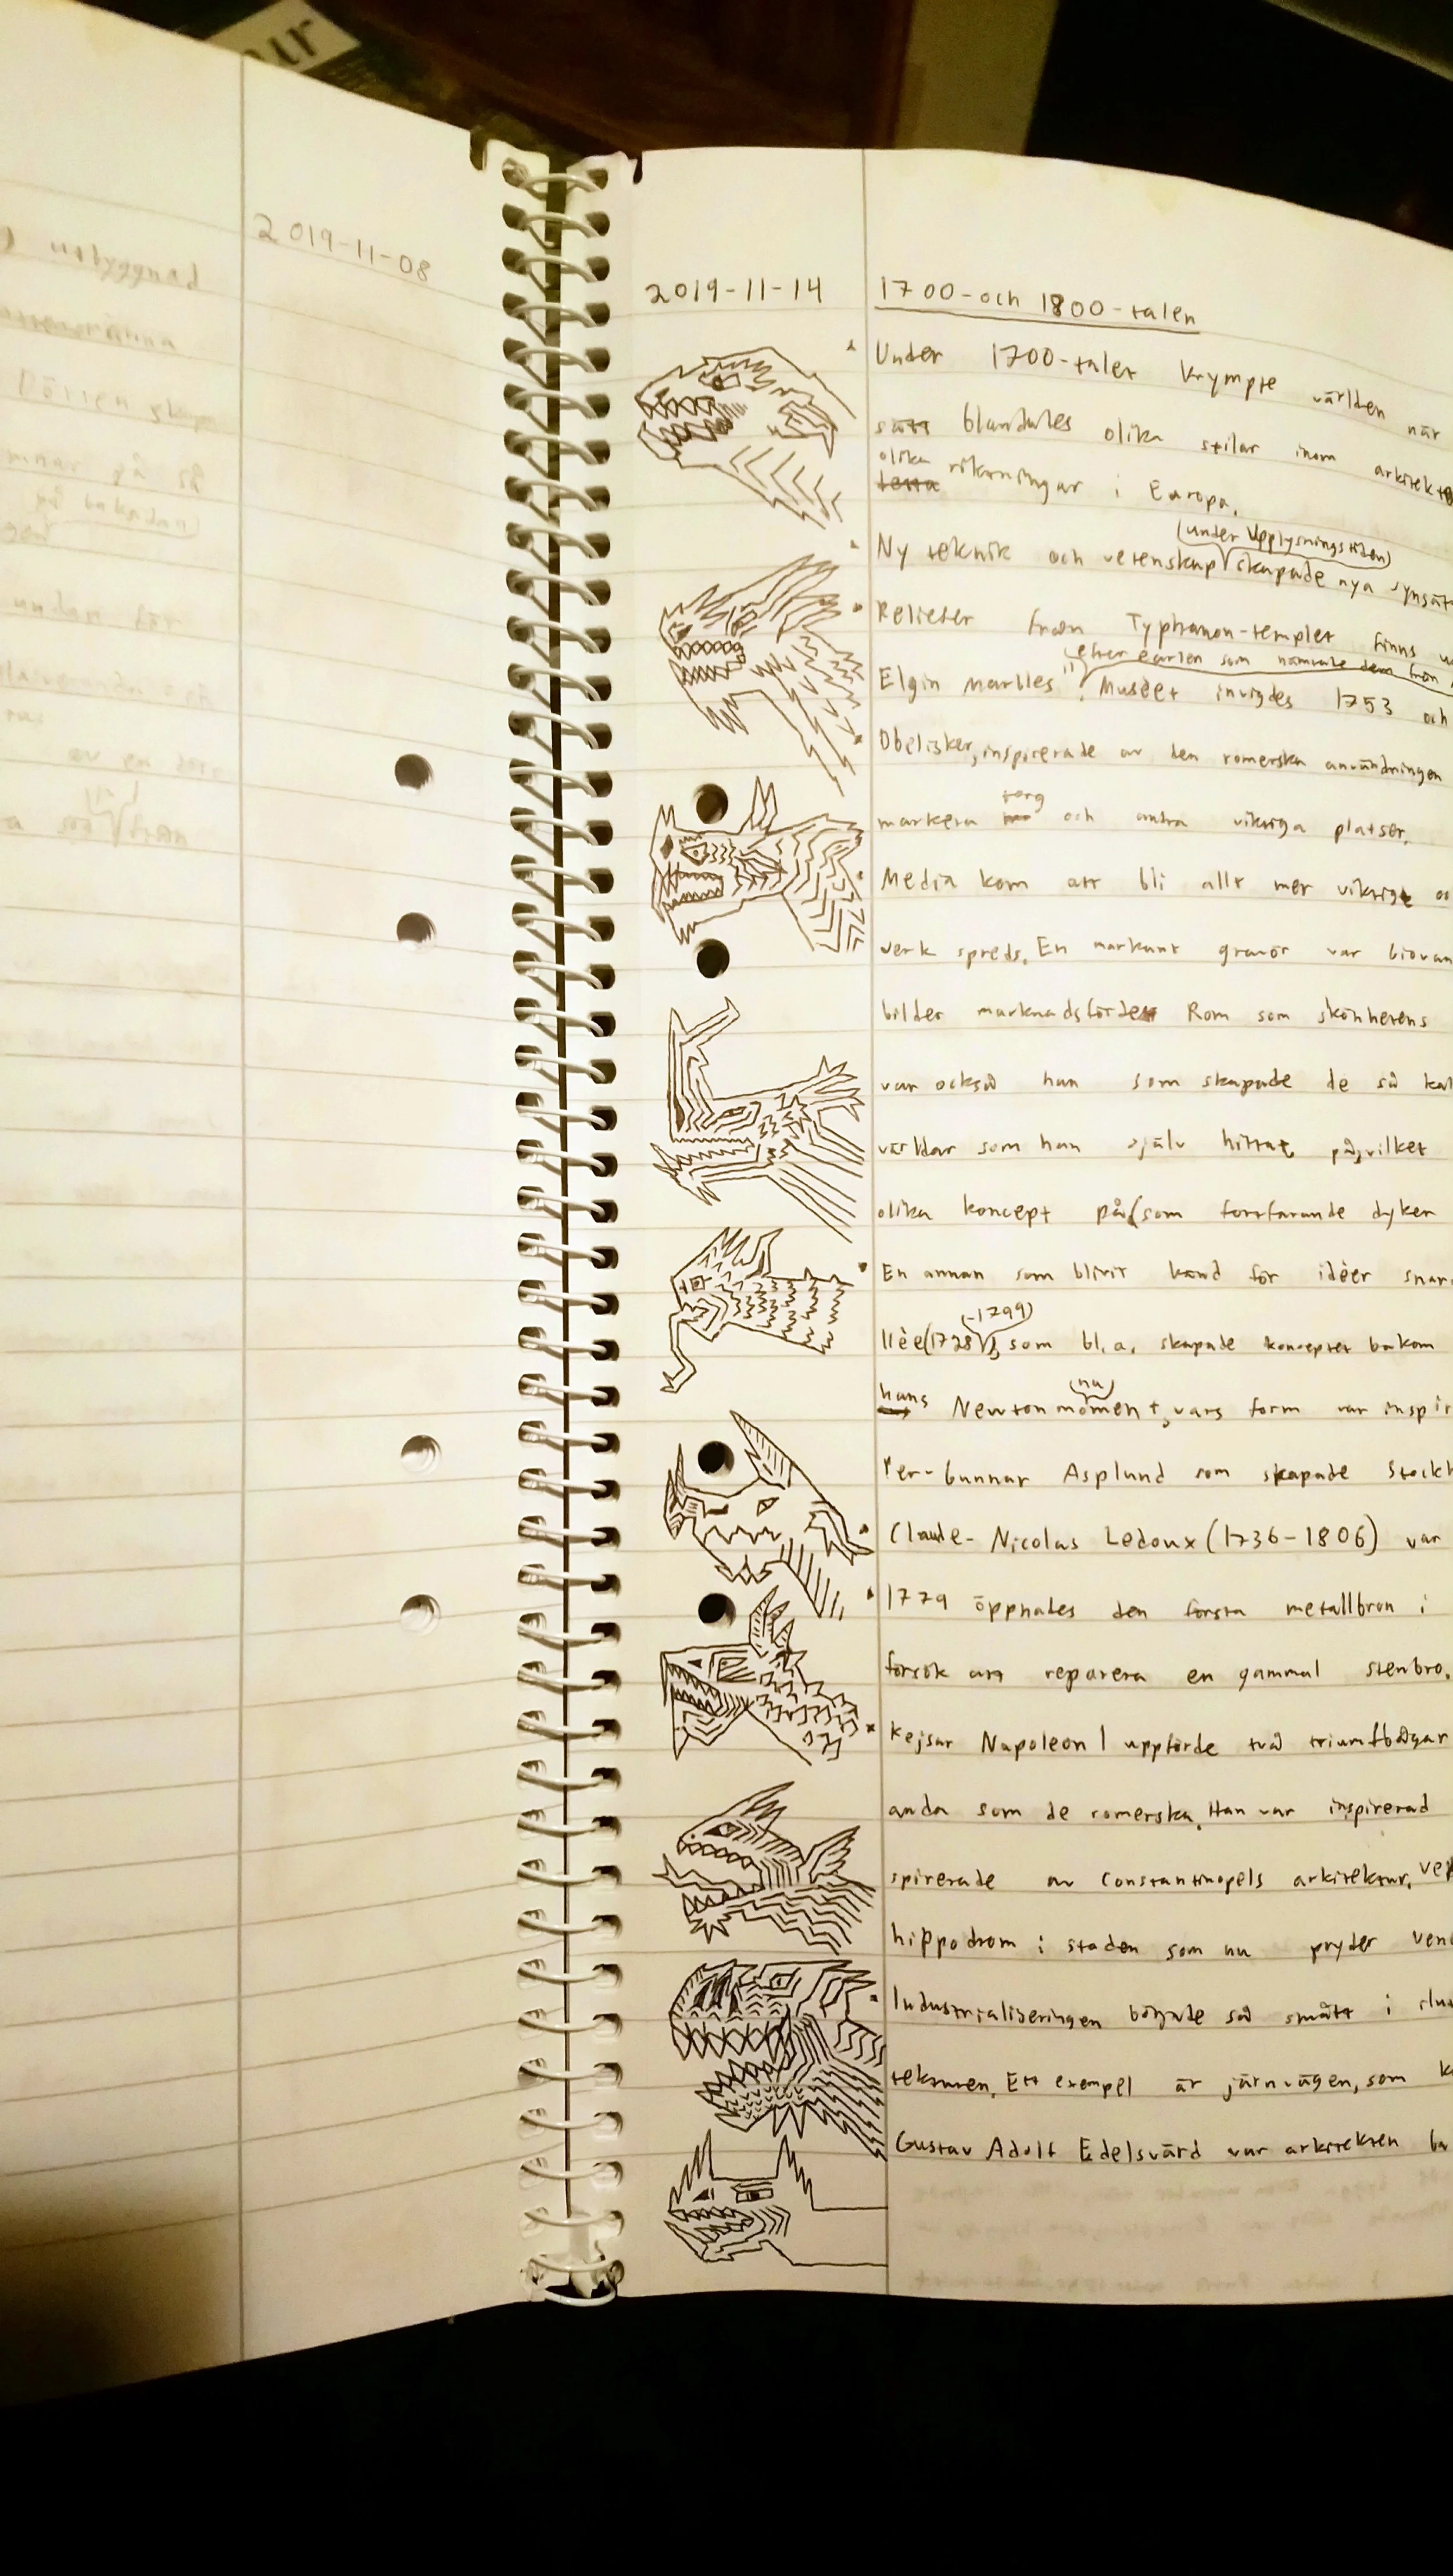 2019-11-08
2019-11-14
1700-och 1800-talen
Under 1700-talet krympte världen när
sätt blandades olika stilar inom arkitekt
olika
riktningar i Europa.
(under Upplysningstiden)
Ny teknik och vetenskap skapade nya synsät
Reliefer från Typhanon-templet finns
efter earlen som hämtade dem från
Elgin Marbles". Museet invigdes 1753 och
Obelisker, inspirerade av den romerska användningen
torg
markera och andra viktiga platser.
Media kom att bli allt mer viktigt oc
verk spreds. En markant gravör var Giovan
bilder marknadsförde Rom som skönhetens
var också han som skapade de så kal
världar som han själv hittat på, vilket
olika koncept på (som fortfarande dyker
En annan som blivit känd för idéer snar
(-1799)
llée (1728), som bl.a. skapade konceptet bakom
hans Newtonmoment, vars form var inspir
(nu)
Per-Gunnar Asplund som skapade Stockh
Claude-Nicolas Ledoux (1736-1806) var
1779 öppnades den första metallbron i
försök att reparera en gammal stenbro.
Kejsar Napoleon I uppförde två triumfbågar
anda som de romerska. Han var inspirerad
spirerade av Constantinopels arkitektur.
hippodrom i staden som nu pryder Vene
Industrialiseringen började så smått i slu
tekturen. Ett exempel är järnvägen, som k
Gustav Adolf Edelsvärd var arkitekten ba